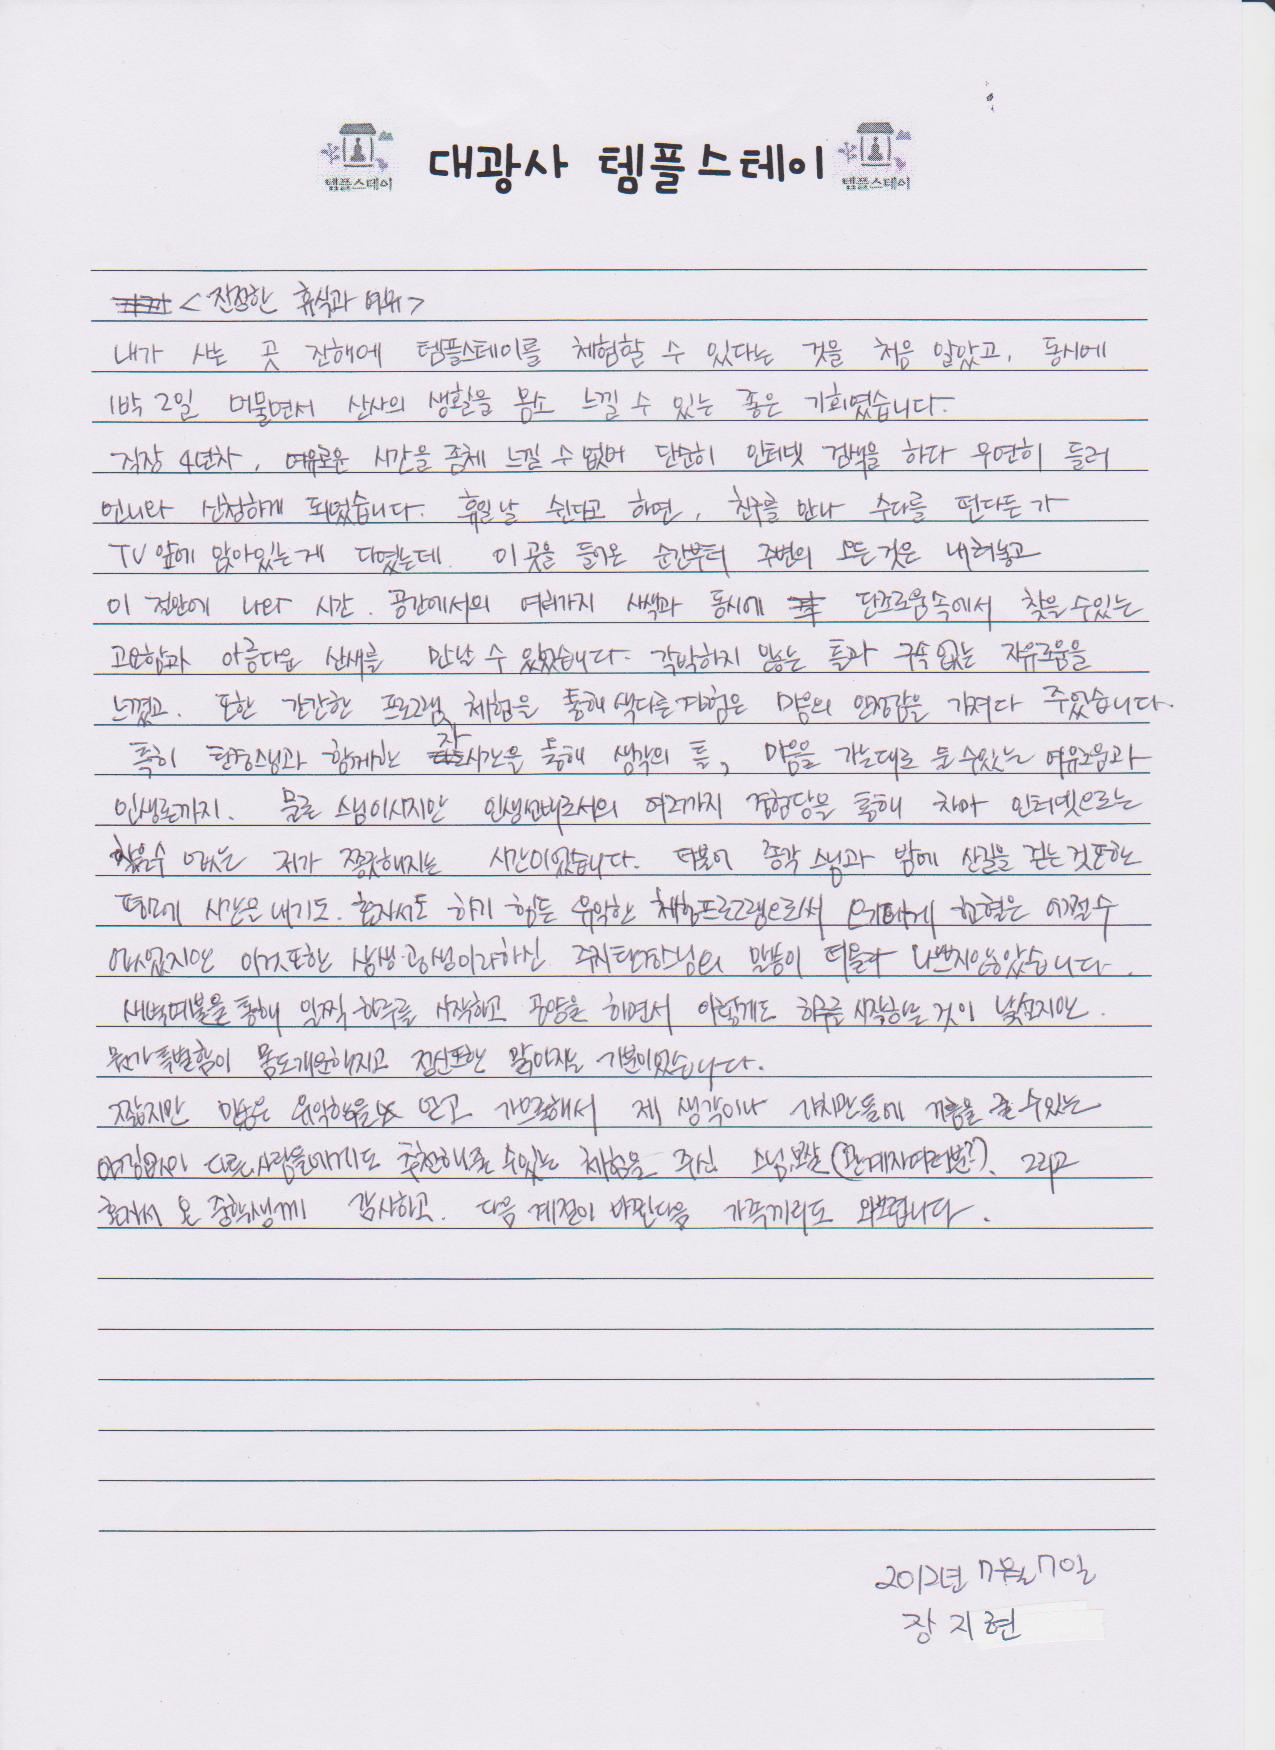 템플스테이 대광사 템플스테이 템플스테이
<진정한 휴식과 여유>
내가 사는 곳 진해에 템플스테이를 체험할 수 있다는 것을 처음 알았고, 동시에
1박 2일 머물면서 산사의 생활을 몸소 느낄 수 있는 좋은 기회였습니다.
직장 4년차, 여유로운 시간을 좀체 느낄 수 없어 단순히 인터넷 검색을 하다 우연히 들러
언니와 신청하게 되었습니다. 휴일날 쉰다고 하면, 친구를 만나 수다를 떤다든가
TV앞에 앉아있는게 다였는데. 이 곳을 들어온 순간부터 주변의 모든것은 내려놓고
이 전안에 나와 시간. 공간에서의 여러가지 사색과 동시에 단조로움속에서 찾을 수있는
고요함과 아름다운 산새를 만날 수 있었습니다. 각박하지 않는 틀과 구속 없는 자유로움을
느꼈고. 또한 간간한 프로그램 체험을 통해 색다른경험은 마음의 안정감을 가져다 주었습니다.
특히 탄경스님과 함께한 차시간을 통해 생각의 틀, 마음을 가는대로 둘 수있는 여유로움과
인생론까지. 물론 스님이시지만 인생선배로서의 여러가지 경험담을 통해 차마 인터넷으로는
찾을수 없는 귀가 쫑긋해지는 시간이었습니다. 더불어 종각 스님과 밤에 산길을 걷는 것또한
평모에 시간은 내기도. 혼자서도 하기 힘든 유익한 체험프로그램으로써 모기에게 헌혈은 어쩔수
없었지만 이것또한 상생·공생이라하신 주지탄경스님의 말씀이 떠올라 나쁘지않았습니다.
새벽예불을 통해 일찍 하루를 시작하고 공양을 하면서 이렇게도 하루를 시작하는 것이 낯설지만.
뭔가 특별함이 몸도개운해지고 정신또한 맑아지는 기분이었습니다.
짧지만 많은 유익함을 안고 가득해서 제 생각이나 가치관들에 기름을 줄 수있는
다른사람들에게도 추천해줄 수있는 체험을 주신 스님, 보살(관계자여러분?). 그리고
혼자서 온 중학생께 감사하고. 다음 계절이 바뀐다음 가족끼리도 와보렵니다.
2012년 7월 70일
장지현